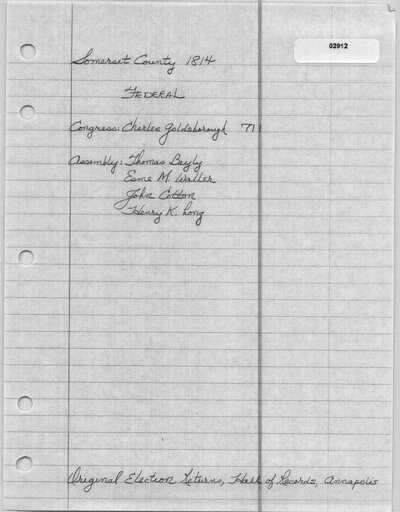 02912
Somerset County 1814
FEDERAL
Congress: Charles Goldsborough 711
Assembly: Thomas Bayly
Esme M. Waller
John Cotton
Henry K. Long
Original Election Returns, Hall of Records, Annapolis